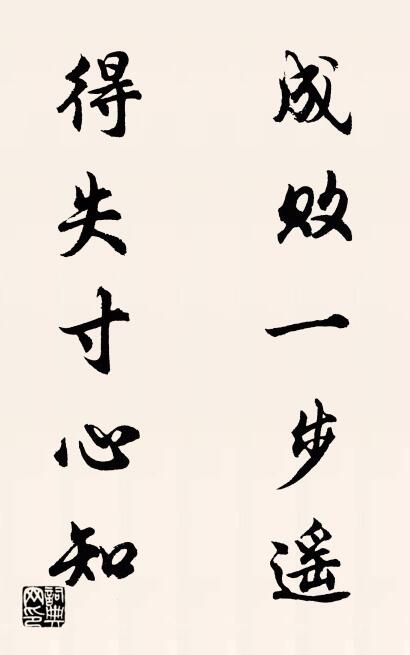 成败一步遥
得失寸心知
詞典网印